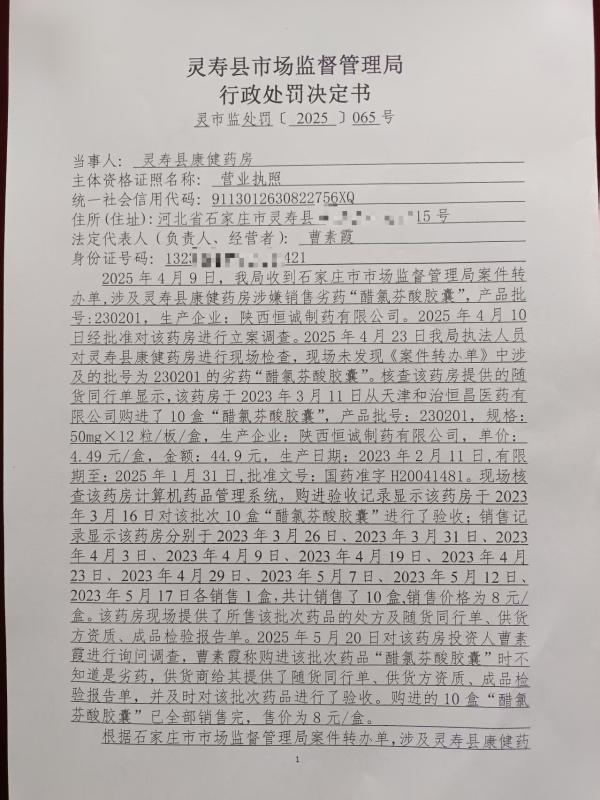 灵寿县市场监督管理局
行政处罚决定书
灵市监处罚〔 2025 〕065号
当事人： 灵寿县康健药房
主体资格证照名称： 营业执照
统一社会信用代码： 9113012630822756XQ
住所(住址):河北省石家庄市灵寿县 15号
法定代表人（负责人、经营者）： 曹素霞
身份证号码: 132 421
2025年4月9日，我局收到石家庄市市场监督管理局案件转
办单,涉及灵寿县康健药房涉嫌销售劣药“醋氯芬酸胶囊”,产品批
号:230201，生产企业：陕西恒诚制药有限公司。2025年4月10
日经批准对该药房进行立案调查。2025年4月23日我局执法人员
对灵寿县康健药房进行现场检查，现场未发现《案件转办单》中涉
及的批号为230201的劣药“醋氯芬酸胶囊”。核查该药房提供的随
货同行单显示,该药房于2023年3月11日从天津和治恒昌医药有
限公司购进了10盒“醋氯芬酸胶囊”，产品批号：230201，规格：
50mg×12粒/板/盒，生产企业：陕西恒诚制药有限公司，单价：
4.49元/盒，金额：44.9元，生产日期：2023年2月11日,有限
期至：2025年1月31日,批准文号：国药准字H20041481。现场核
查该药房计算机药品管理系统，购进验收记录显示该药房于2023
年3月16日对该批次10盒“醋氯芬酸胶囊”进行了验收；销售记
录显示该药房分别于2023年3月26日、2023年3月31日、2023
年4月3日、2023年4月9日、2023年4月19日、2023年4月
23日、2023年4月29日、2023年5月7日、2023年5月12日、
2023年5月17日各销售1盒,共计销售了10盒,销售价格为8元/
盒。该药房现场提供了所售该批次药品的处方及随货同行单、供货
方资质、成品检验报告单。2025年5月20日对该药房投资人曹素
霞进行询问调查，曹素霞称购进该批次药品“醋氯芬酸胶囊”时不
知道是劣药，供货商给其提供了随货同行单、供货方资质、成品检
验报告单，并及时对该批次药品进行了验收。购进的10盒“醋氯
芬酸胶囊”已全部销售完，售价为8元/盒。
根据石家庄市市场监督管理局案件转办单,涉及灵寿县康健药
1